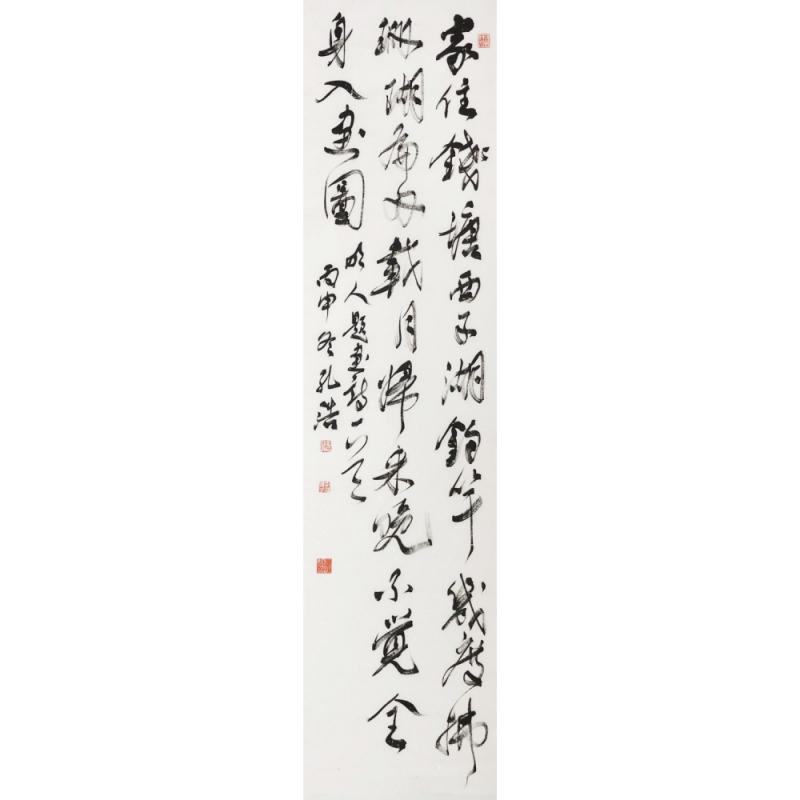 家住錢塘西子湖釣竿幾度拂
珊瑚扁舟載月歸來晚不覺全
身入畫圖
明人題畫詩一首
丙申冬孔浩